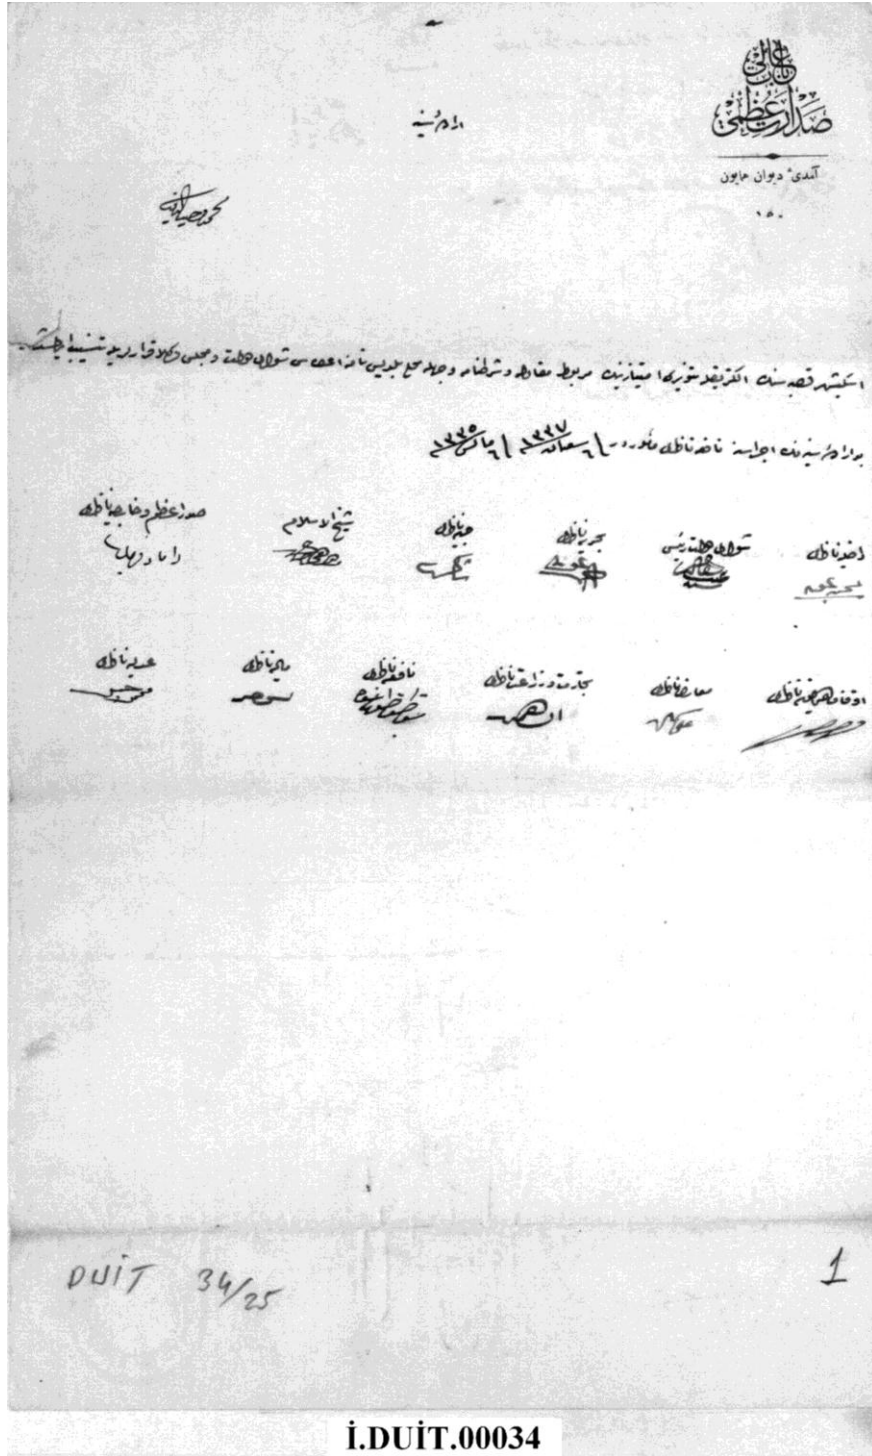 باب عالی
صدارت عظمی
آمدیٔ دیوان همایون
١٥٠
ارادهٔ سنیه
محمد وحید الدین
اسکیشهر قصبه‌سنك الکتریقله تنویری امتیازینك مربوط مقاوله و شرطنامه وجهله محلی بلدیه‌سی نامنه اعطاسی شورای دولت و مجلس وکلا قراریله تنسیب ایدلمشدر
بو ارادهٔ سنیه‌نك اجراسنه نافعه ناظری مأموردر ٦ شعبان ١٣٣٧ / ٦ مایس ١٣٣٥
صدر اعظم و خارجیه ناظری
داماد فرید
شیخ الاسلام
حربیه ناظری
شاکر
بحریه ناظری
شورای دولت رئیسی
داخلیه ناظری
محمد علی
عدلیه ناظری
مالیه ناظری
نافعه ناظری
تجارت و زراعت ناظری
معارف ناظری
علی کمال
اوقاف همایون ناظری
DUİT 34/25
1
İ.DUİT.00034